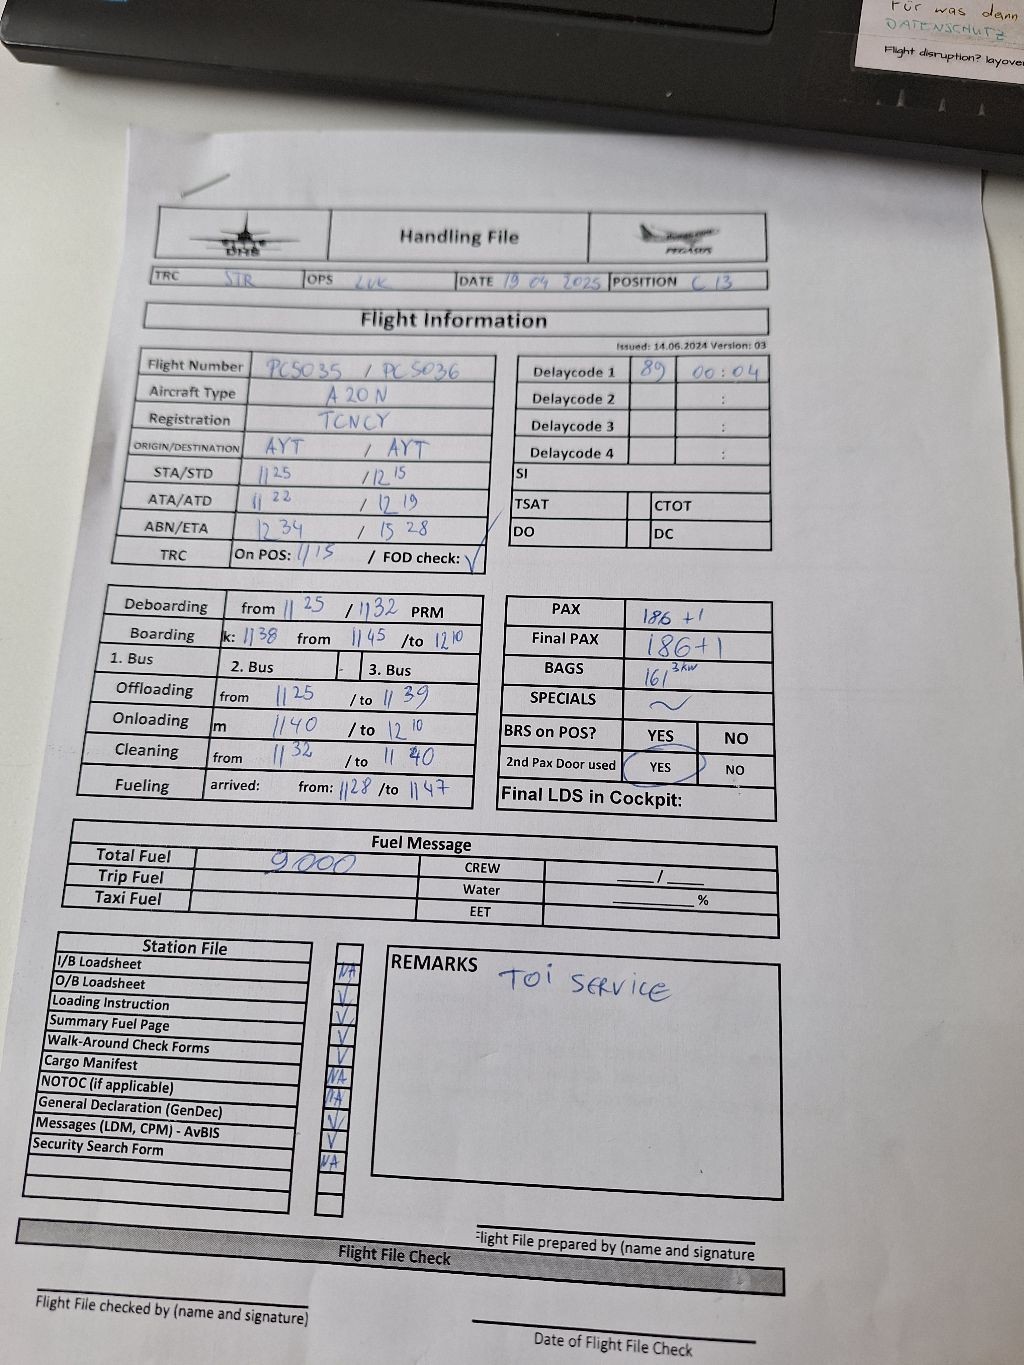 Für was denn
DATENSCHUTZ
Flight disruption? layover
DHS
Handling File
PEGASUS
TRC STR OPS LUK DATE 19 04 2025 POSITION C 13
Flight Information
Issued: 14.06.2024 Version: 03
Flight Number PC5035 / PC5036
Aircraft Type A20N
Registration TCNCY
ORIGIN/DESTINATION AYT / AYT
STA/STD 1125 / 1215
ATA/ATD 1122 / 1219
ABN/ETA 1234 / 1528
TRC On POS: 1115 / FOD check: ✓
Delaycode 1 89 00:04
Delaycode 2 :
Delaycode 3 :
Delaycode 4 :
SI
TSAT CTOT
DO DC
Deboarding from 1125 / 1132 PRM
Boarding k: 1138 from 1145 /to 1210
1. Bus 2. Bus - 3. Bus
Offloading from 1125 / to 1139
Onloading m 1140 / to 1210
Cleaning from 1132 / to 1140
Fueling arrived: from: 1128 /to 1147
PAX 186 +1
Final PAX 186+1
BAGS 161 3kw
SPECIALS ~
BRS on POS? YES NO
2nd Pax Door used YES NO
Final LDS in Cockpit:
Fuel Message
Total Fuel 9000 CREW ___/___
Trip Fuel Water ______%
Taxi Fuel EET
Station File
I/B Loadsheet NA
O/B Loadsheet ✓
Loading Instruction ✓
Summary Fuel Page ✓
Walk-Around Check Forms ✓
Cargo Manifest NA
NOTOC (if applicable) NA
General Declaration (GenDec) ✓
Messages (LDM, CPM) - AvBIS ✓
Security Search Form NA
REMARKS TOi SERViCE
Flight File prepared by (name and signature
Flight File Check
Flight File checked by (name and signature)
Date of Flight File Check